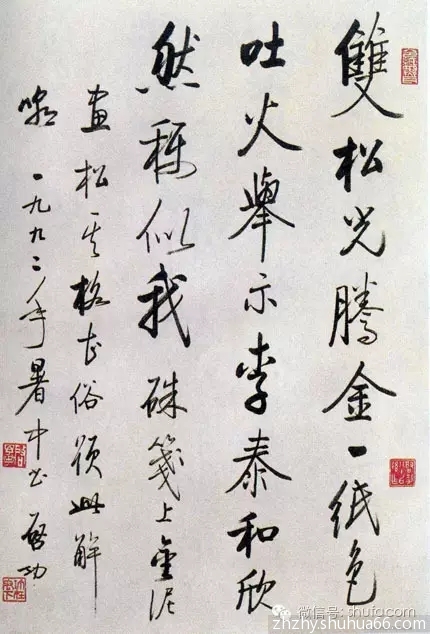 雙松光騰金一紙色
吐火舉示李泰和欣
然稱似我 硃箋上金泥
畫松其格甚俗須此解
嘲 一九九二年暑中書 啟功
微信号: shufa.com
zhzhy.shuhua66.com